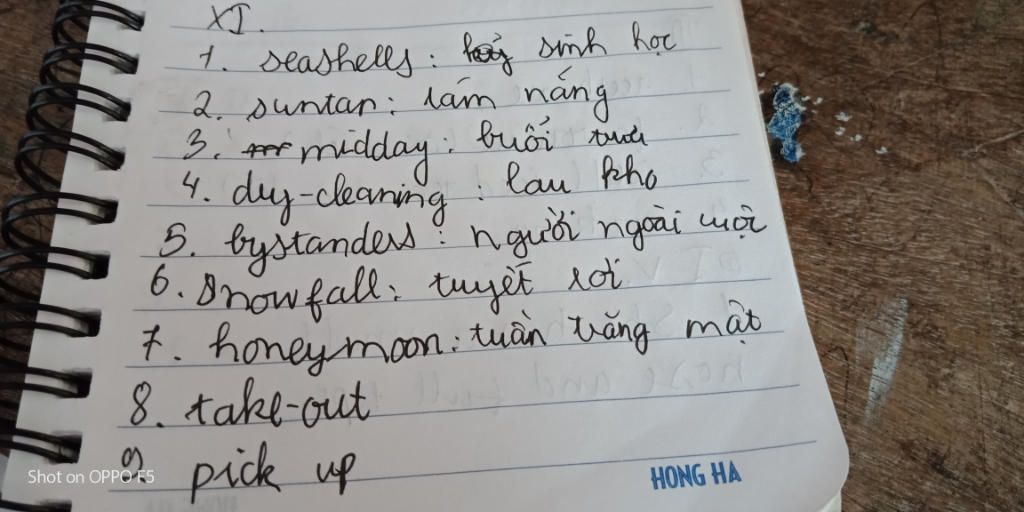 XI.
1. seashells: sinh học
2. suntan: tắm nắng
3. midday: buổi trưa
4. dry-cleaning: lau khô
5. bystanders: người ngoài cuộc
6. snowfall: tuyết rơi
7. honeymoon: tuần trăng mật
8. take-out
9. pick up
HONG HA
Shot on OPPO F5